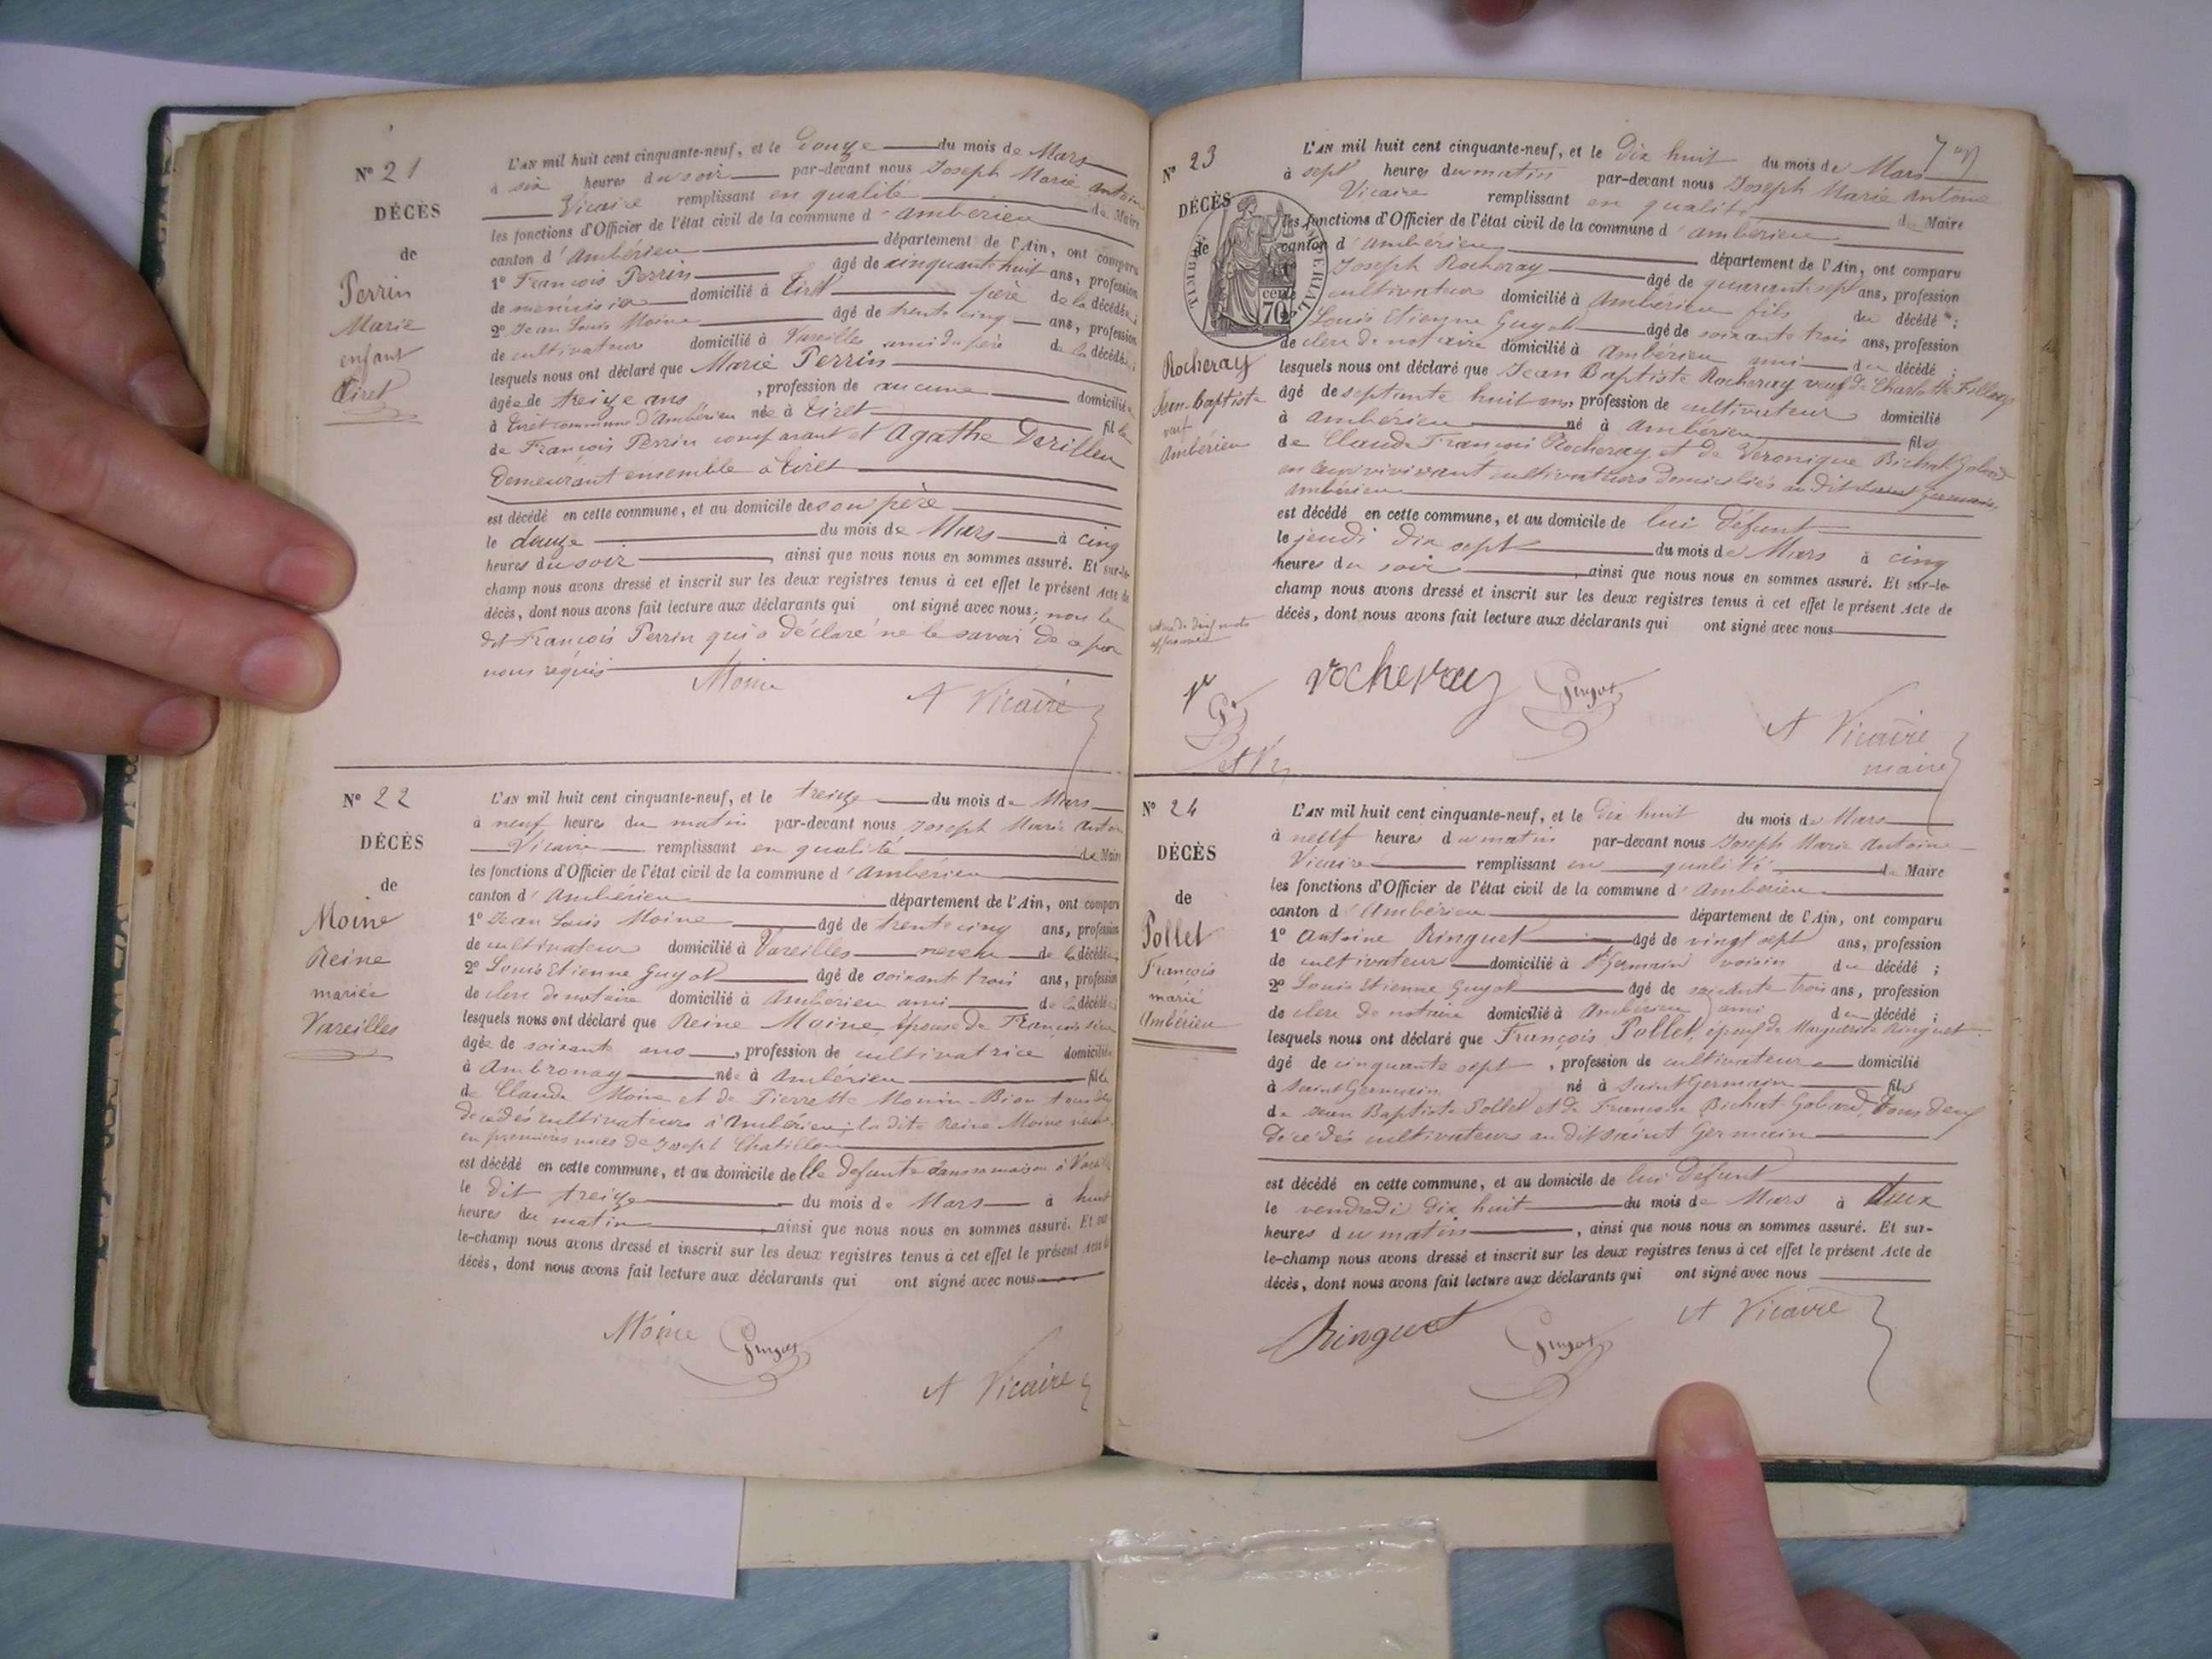 N° 21
DÉCÈS
de
Perrin
Marie
enfant
Tiret
L'AN mil huit cent cinquante-neuf, et le douze du mois de Mars
à six heures du soir par-devant nous Joseph Marie Antoine
Vicaire remplissant en qualité de Maire
les fonctions d'Officier de l'état civil de la commune d'Ambérieu
canton d'Ambérieu département de l'Ain, ont comparu
1° François Perrin âgé de cinquante huit ans, profession
de menuisier domicilié à Tiret père de la décédée;
2° Jean Louis Moine âgé de trente cinq ans, profession
de cultivateur domicilié à Vareilles ami du père de la décédée;
lesquels nous ont déclaré que Marie Perrin
âgée de treize ans, profession de aucune domiciliée
à Tiret commune d'Ambérieu née à Tiret fille
de François Perrin comparant et Agathe
demeurant ensemble à Tiret
est décédé en cette commune, et au domicile de son père
le douze du mois de Mars à cinq
heures du soir, ainsi que nous nous en sommes assuré. Et sur-le-
champ nous avons dressé et inscrit sur les deux registres tenus à cet effet le présent Acte de
décès, dont nous avons fait lecture aux déclarants qui ont signé avec nous, non le
dit François Perrin qui a déclaré ne le savoir de ce par
nous requis
Moine A Vicaire
N° 22
DÉCÈS
de
Moine
Reine
mariée
Vareilles
L'AN mil huit cent cinquante-neuf, et le treize du mois de Mars
à neuf heures du matin par-devant nous Joseph Marie Antoine
Vicaire remplissant en qualité de Maire
les fonctions d'Officier de l'état civil de la commune d'Ambérieu
canton d'Ambérieu département de l'Ain, ont comparu
1° Jean Louis Moine âgé de trente cinq ans, profession
de cultivateur domicilié à Vareilles neveu de la décédée;
2° Louis Etienne Guyot âgé de soixante trois ans, profession
de clerc de notaire domicilié à Ambérieu ami de la décédée;
lesquels nous ont déclaré que Reine Moine, épouse de François
âgée de soixante ans, profession de cultivatrice domiciliée
à Ambronay née à Ambérieu fille
de Claude Moine et de Pierrette
décédés cultivateurs à Ambérieu; la dite Reine Moine veuve
en premières noces de Joseph Chatillon
est décédé en cette commune, et au domicile de elle défunte dans sa maison à Vareilles
le dit treize du mois de Mars à huit
heures du matin, ainsi que nous nous en sommes assuré. Et sur-
le-champ nous avons dressé et inscrit sur les deux registres tenus à cet effet le présent Acte de
décès, dont nous avons fait lecture aux déclarants qui ont signé avec nous
Moine Guyot
A Vicaire
N° 23
DÉCÈS
de
TIMBRE IMPÉRIAL
70 cent
Rocheray
Jean-Baptiste
veuf
Ambérieu
L'AN mil huit cent cinquante-neuf, et le dix huit du mois de Mars
à sept heures du matin par-devant nous Joseph Marie Antoine
Vicaire remplissant en qualité de Maire
les fonctions d'Officier de l'état civil de la commune d'Ambérieu
canton d'Ambérieu département de l'Ain, ont comparu
Joseph Rocheray âgé de quarante sept ans, profession
cultivateur domicilié à Ambérieu fils du décédé;
Louis Etienne Guyot âgé de soixante trois ans, profession
de clerc de notaire domicilié à Ambérieu ami du décédé;
lesquels nous ont déclaré que Jean Baptiste Rocheray veuf de Charlotte
âgé de septante huit ans, profession de cultivateur domicilié
à Ambérieu né à Ambérieu fils
de Claude François Rocheray et de Véronique Bichat Gobard
en leur vivivant cultivateurs domiciliés au dit Saint Germain,
Ambérieu
est décédé en cette commune, et au domicile de lui défunt
le jeudi dix sept du mois de Mars à cinq
heures du soir, ainsi que nous nous en sommes assuré. Et sur-le-
champ nous avons dressé et inscrit sur les deux registres tenus à cet effet le présent Acte de
décès, dont nous avons fait lecture aux déclarants qui ont signé avec nous
rocheray Guyot
A Vicaire
maire
N° 24
DÉCÈS
de
Pollet
François
marié
Ambérieu
L'AN mil huit cent cinquante-neuf, et le dix huit du mois de Mars
à neuf heures du matin par-devant nous Joseph Marie Antoine
Vicaire remplissant en qualité de Maire
les fonctions d'Officier de l'état civil de la commune d'Ambérieu
canton d'Ambérieu département de l'Ain, ont comparu
1° Antoine Ringuet âgé de vingt sept ans, profession
de cultivateur domicilié à St Germain voisin du décédé;
2° Louis Etienne Guyot âgé de soixante trois ans, profession
de clerc de notaire domicilié à Ambérieu ami du décédé;
lesquels nous ont déclaré que François Pollet, époux de Marguerite Ringuet
âgé de cinquante sept, profession de cultivateur domicilié
à Saint Germain né à Saint Germain fils
de Jean Baptiste Pollet et de Françoise Bichat Gobard, tous deux
décédés cultivateurs au dit Saint Germain
est décédé en cette commune, et au domicile de lui défunt
le vendredi dix huit du mois de Mars à deux
heures du matin, ainsi que nous nous en sommes assuré. Et sur-
le-champ nous avons dressé et inscrit sur les deux registres tenus à cet effet le présent Acte de
décès, dont nous avons fait lecture aux déclarants qui ont signé avec nous
Ringuet Guyot A Vicaire